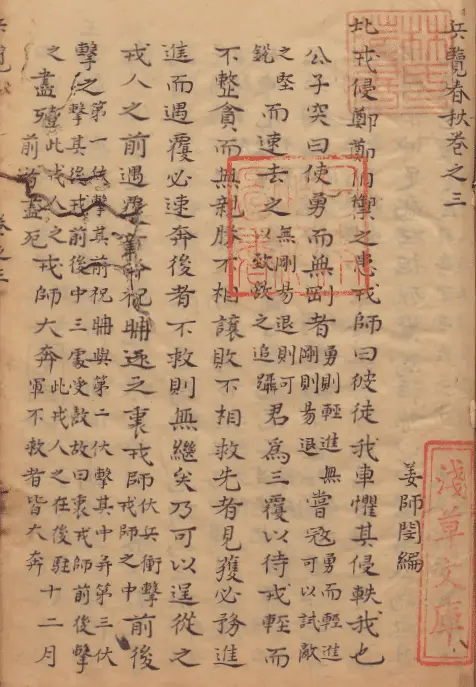 兵覽春秋卷之三
姜師閔編
北戎侵鄭鄭伯禦之患戎師曰彼徒我車懼其侵軼我也
公子突曰使勇而無剛者勇則輕進無剛則易退嘗寇勇而輕進可以試敵
之堅銳而速去之無剛易退則可以致敵之追躡君爲三覆以待戎輕而
不整貪而無親勝不相讓敗不相救先者見獲必務進
進而遇覆必速奔後者不救則無繼矣乃可以逞從之
戎人之前遇覆者奔祝聃逐之衷戎師伏兵衝擊戎師之中前後
擊之第一伏擊其前祝聃與第二伏擊其中并第三伏擊其後戎前後中三處受敵故曰衷戎師前後擊
之盡殪此戎人之前者盡死戎師大奔此戎人之在後駐軍不救者皆大奔十二月
淺草文庫
卷之三